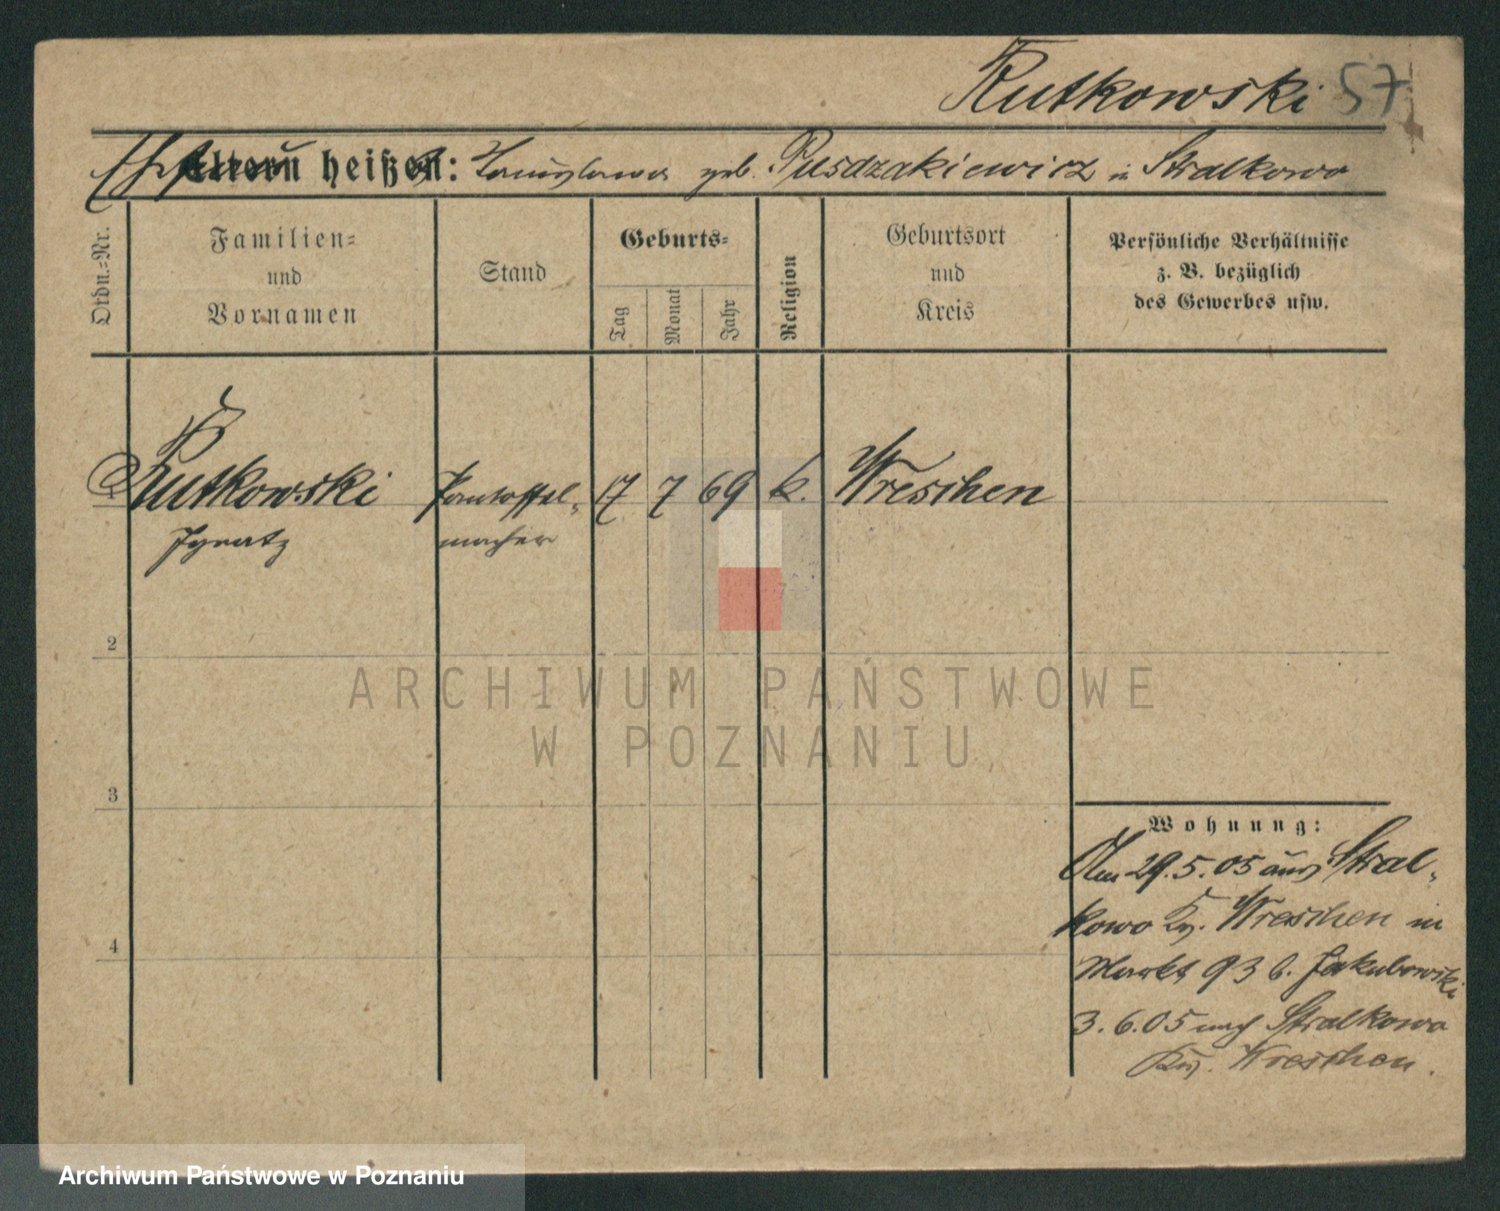 Rutkowski 57
Ehefrau Eltern heißen: Stanislawa geb. Pusdzakiewicz in Stralkowo
Ordn.-Nr.
Familien-
und
Vornamen
Stand
Geburts-
Tag
Monat
Jahr
Religion
Geburtsort
und
Kreis
Persönliche Verhältnisse
z. B. bezüglich
des Gewerbes usw.
Rutkowski Pantoffel- 17 7 69 k. Wreschen
Ignatz macher
2
3
4
Wohnung:
Am 29.5.05 aus Stral-
kowo Kr. Wreschen in
Markt 93 b. Jakubowski
3.6.05 nach Stralkowo
Krs. Wreschen.
ARCHIWUM PAŃSTWOWE
W POZNANIU
Archiwum Państwowe w Poznaniu